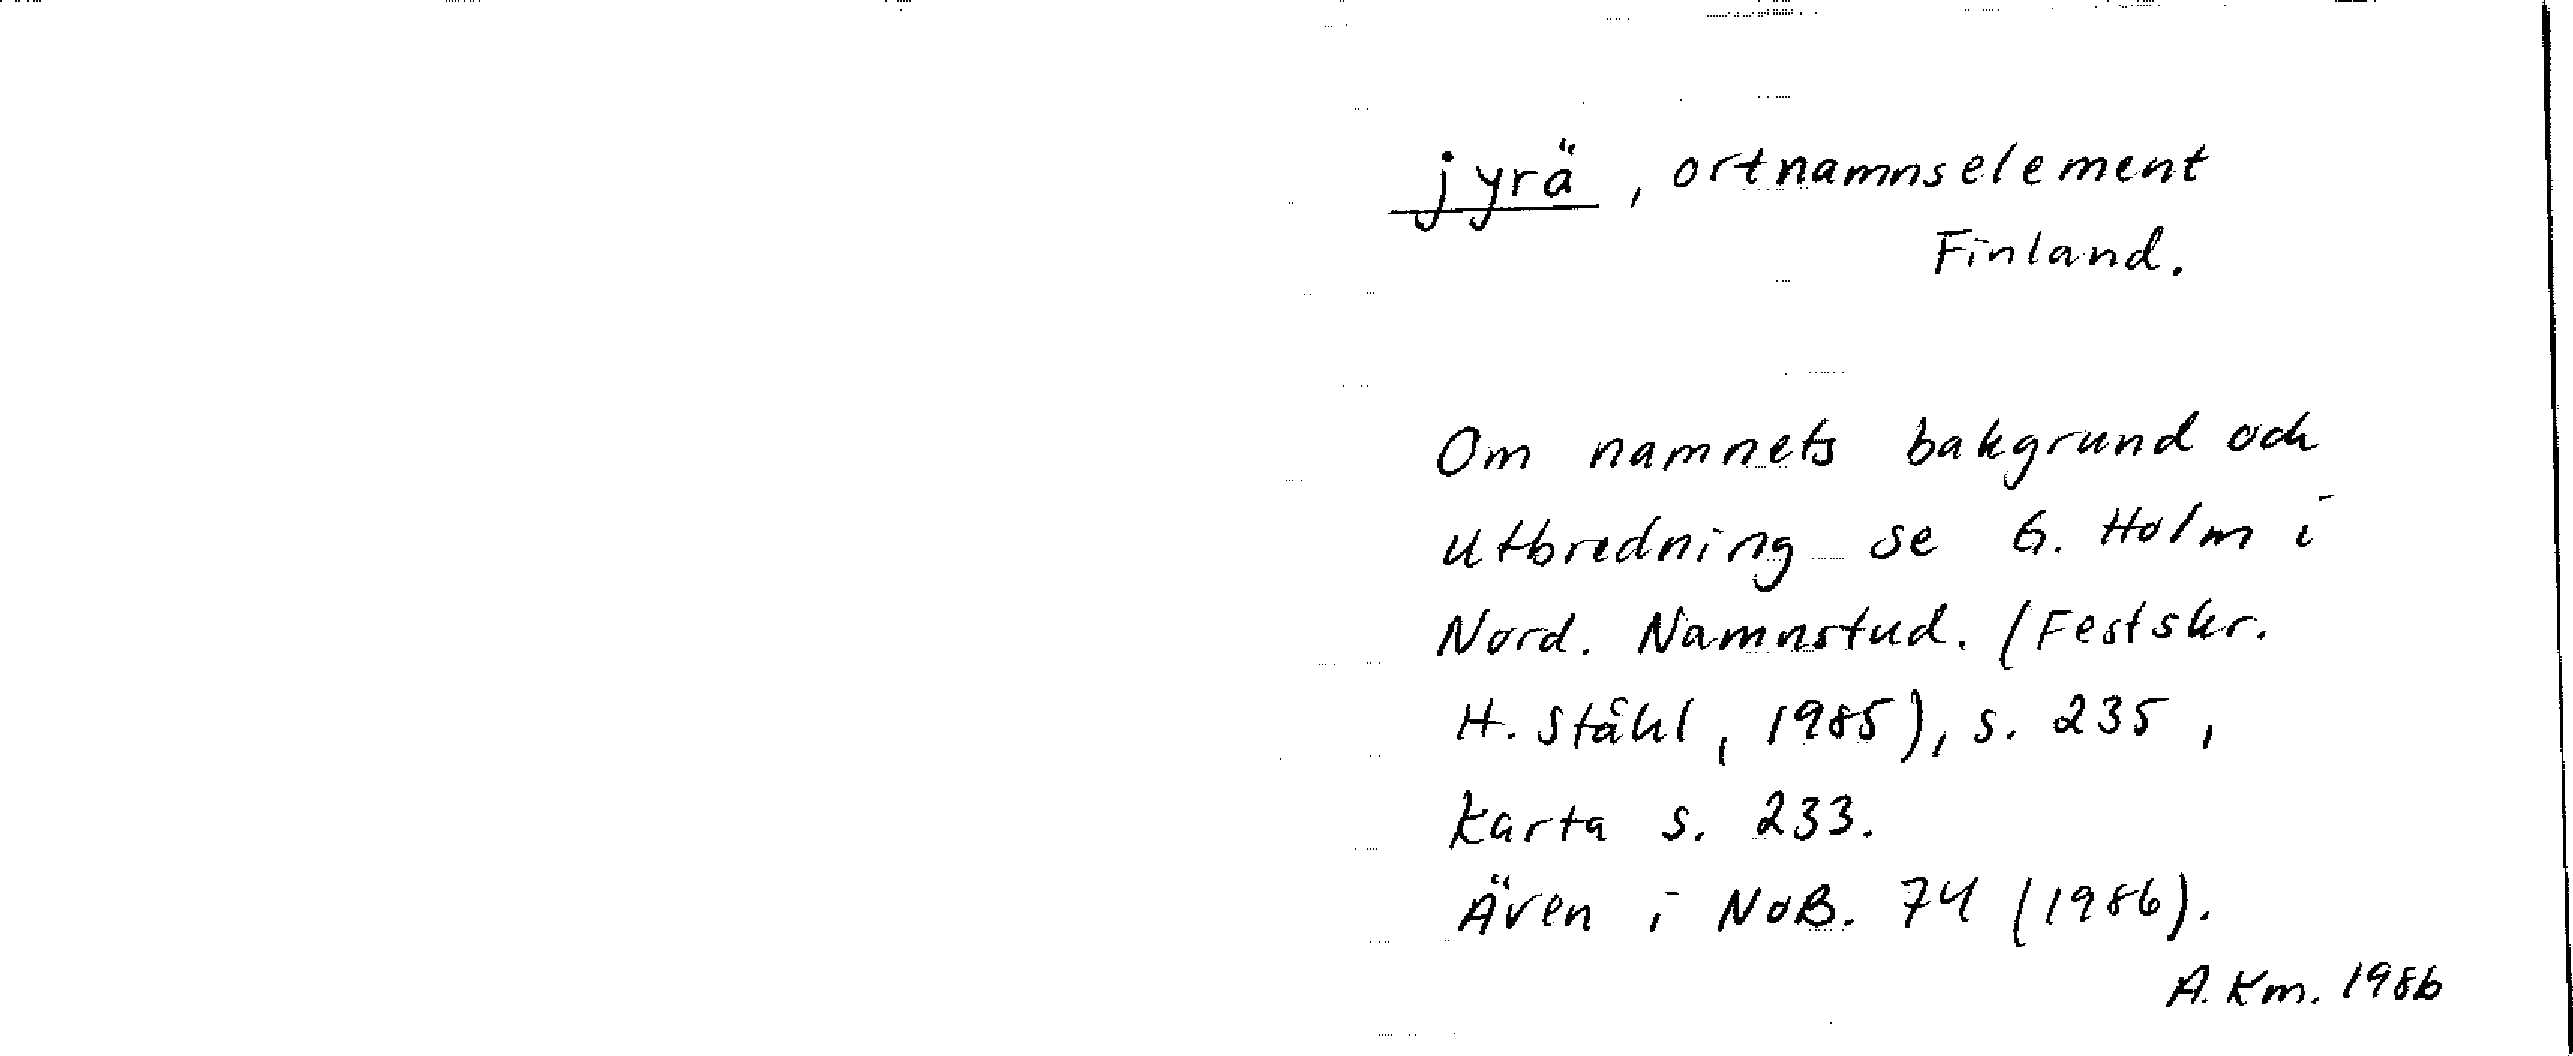 jyrä, ortnamnselement
Finland.
Om namnets bakgrund och
utbredning se G. Holm i
Nord. Namnstud. (Festskr.
H. Ståhl, 1985), s. 235,
Karta s. 233.
Även i NoB. 74 (1986).
A. Km. 1986